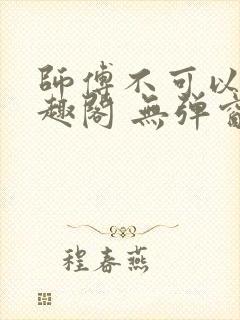 師傅不可以
趣閣 無彈窗
程春燕